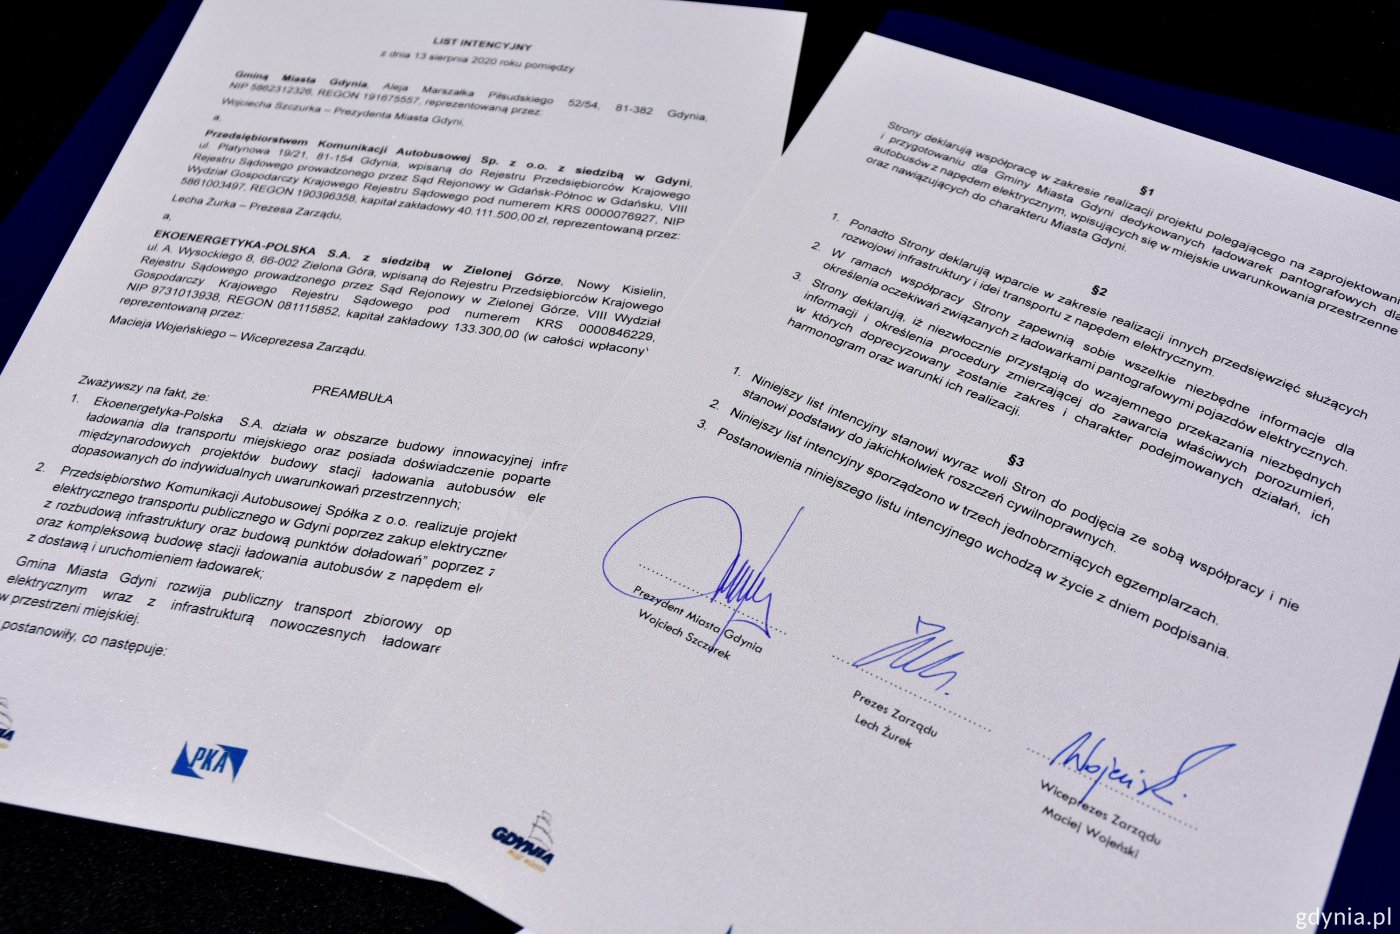 LIST INTENCYJNY
z dnia 13 sierpnia 2020 roku pomiędzy
Gminą Miasta Gdynia, Aleja Marszałka Piłsudskiego 52/54, 81-382 Gdynia,
NIP 5862312326, REGON 191675557, reprezentowaną przez:
Wojciecha Szczurka – Prezydenta Miasta Gdyni,
a,
Przedsiębiorstwem Komunikacji Autobusowej Sp. z o.o. z siedzibą w Gdyni,
ul. Platynowa 19/21, 81-154 Gdynia, wpisaną do Rejestru Przedsiębiorców Krajowego
Rejestru Sądowego prowadzonego przez Sąd Rejonowy w Gdańsk-Północ w Gdańsku, VIII
Wydział Gospodarczy Krajowego Rejestru Sądowego pod numerem KRS 0000076927, NIP
5861003497, REGON 190396358, kapitał zakładowy 40.111.500,00 zł, reprezentowaną przez:
Lecha Żurka – Prezesa Zarządu,
a,
EKOENERGETYKA-POLSKA S.A. z siedzibą w Zielonej Górze, Nowy Kisielin,
ul. A. Wysockiego 8, 66-002 Zielona Góra, wpisaną do Rejestru Przedsiębiorców Krajowego
Rejestru Sądowego prowadzonego przez Sąd Rejonowy w Zielonej Górze, VIII Wydział
Gospodarczy Krajowego Rejestru Sądowego pod numerem KRS 0000846229,
NIP 9731013938, REGON 081115852, kapitał zakładowy 133.300,00 (w całości wpłacony)
reprezentowaną przez:
Macieja Wojeńskiego – Wiceprezesa Zarządu.
PREAMBUŁA
Zważywszy na fakt, że:
1. Ekoenergetyka-Polska S.A. działa w obszarze budowy innowacyjnej infra
ładowania dla transportu miejskiego oraz posiada doświadczenie poparte
międzynarodowych projektów budowy stacji ładowania autobusów ele
dopasowanych do indywidualnych uwarunkowań przestrzennych;
2. Przedsiębiorstwo Komunikacji Autobusowej Spółka z o.o. realizuje projekt
elektrycznego transportu publicznego w Gdyni poprzez zakup elektryczne
z rozbudową infrastruktury oraz budową punktów doładowań" poprzez z
oraz kompleksową budowę stacji ładowania autobusów z napędem el
z dostawą i uruchomieniem ładowarek;
Gmina Miasta Gdyni rozwija publiczny transport zbiorowy op
elektrycznym wraz z infrastrukturą nowoczesnych ładoware
w przestrzeni miejskiej.
postanowiły, co następuje:
PKA
§1
Strony deklarują współpracę w zakresie realizacji projektu polegającego na zaprojektowani
i przygotowaniu dla Gminy Miasta Gdyni dedykowanych ładowarek pantografowych dla
autobusów z napędem elektrycznym, wpisujących się w miejskie uwarunkowania przestrzenne
oraz nawiązujących do charakteru Miasta Gdyni.
§2
1. Ponadto Strony deklarują wsparcie w zakresie realizacji innych przedsięwzięć służących
rozwojowi infrastruktury i idei transportu z napędem elektrycznym.
2. W ramach współpracy Strony zapewnią sobie wszelkie niezbędne informacje dla
określenia oczekiwań związanych z ładowarkami pantografowymi pojazdów elektrycznych.
3. Strony deklarują, iż niezwłocznie przystąpią do wzajemnego przekazania niezbędnych
informacji i określenia procedury zmierzającej do zawarcia właściwych porozumień,
w których doprecyzowany zostanie zakres i charakter podejmowanych działań, ich
harmonogram oraz warunki ich realizacji.
§3
1. Niniejszy list intencyjny stanowi wyraz woli Stron do podjęcia ze sobą współpracy i nie
stanowi podstawy do jakichkolwiek roszczeń cywilnoprawnych.
2. Niniejszy list intencyjny sporządzono w trzech jednobrzmiących egzemplarzach.
3. Postanowienia niniejszego listu intencyjnego wchodzą w życie z dniem podpisania.
Prezydent Miasta Gdynia
Wojciech Szczurek
Prezes Zarządu
Lech Żurek
Wiceprezes Zarządu
Maciej Wojeński
GDYNIA
moje miasto
gdynia.pl